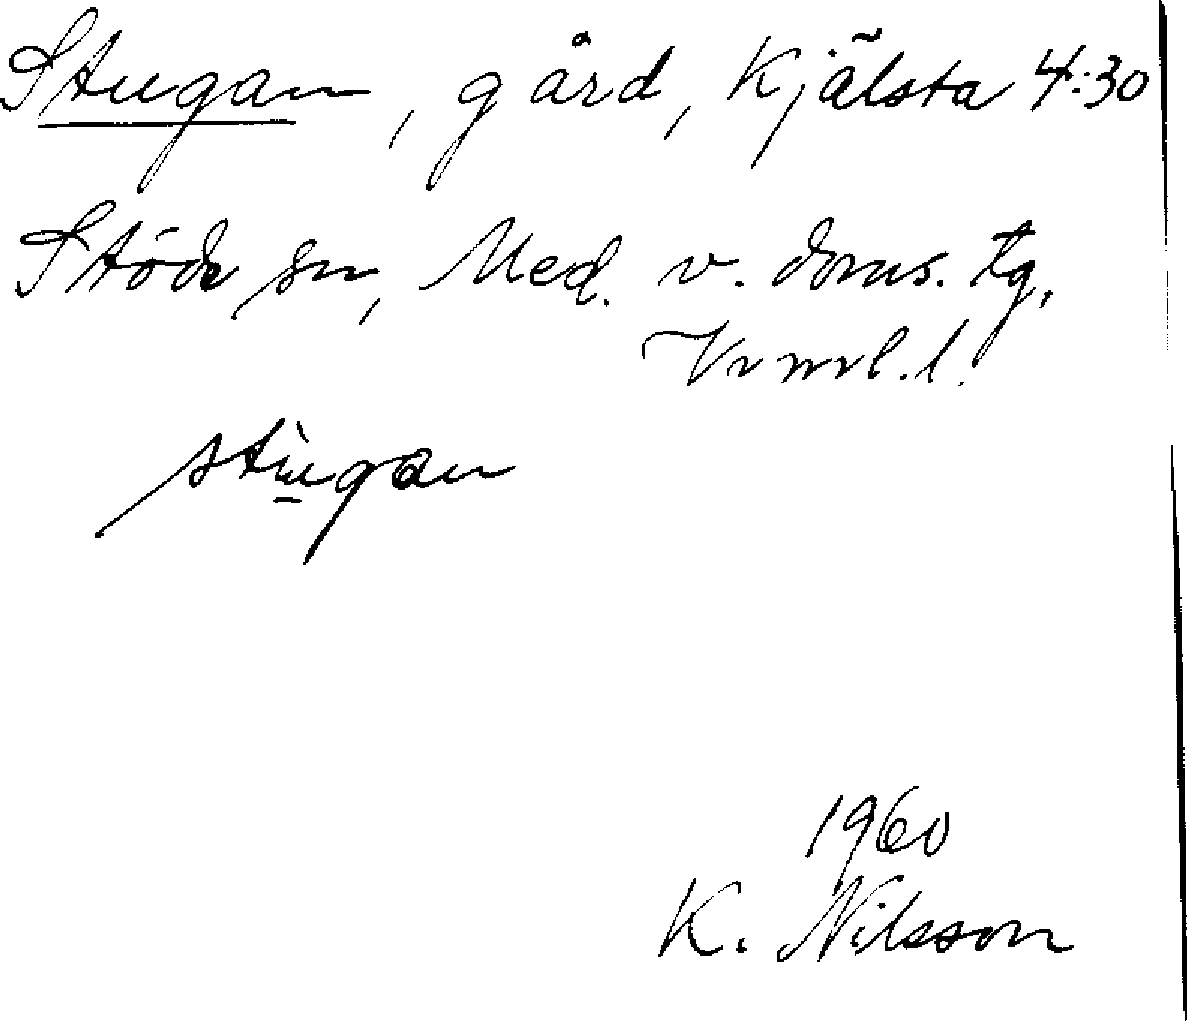 Stugan, gård, Kjälsta 4:30
Stöde sn, Med. v. doms. tg,
Vrnrl.l.
stùgan
1960
K. Nilsson